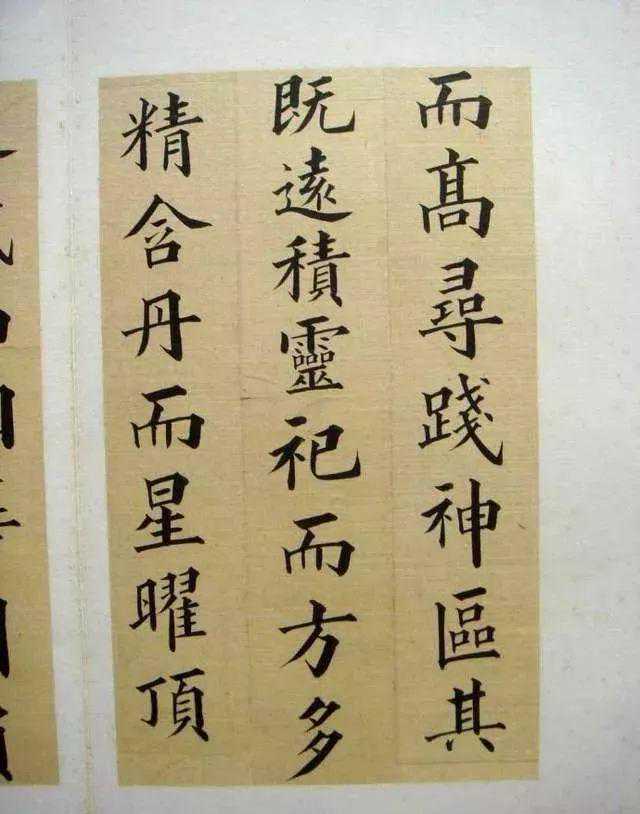 而髙尋踐神區其
既遠積靈祀而方多
精含丹而星曜頂